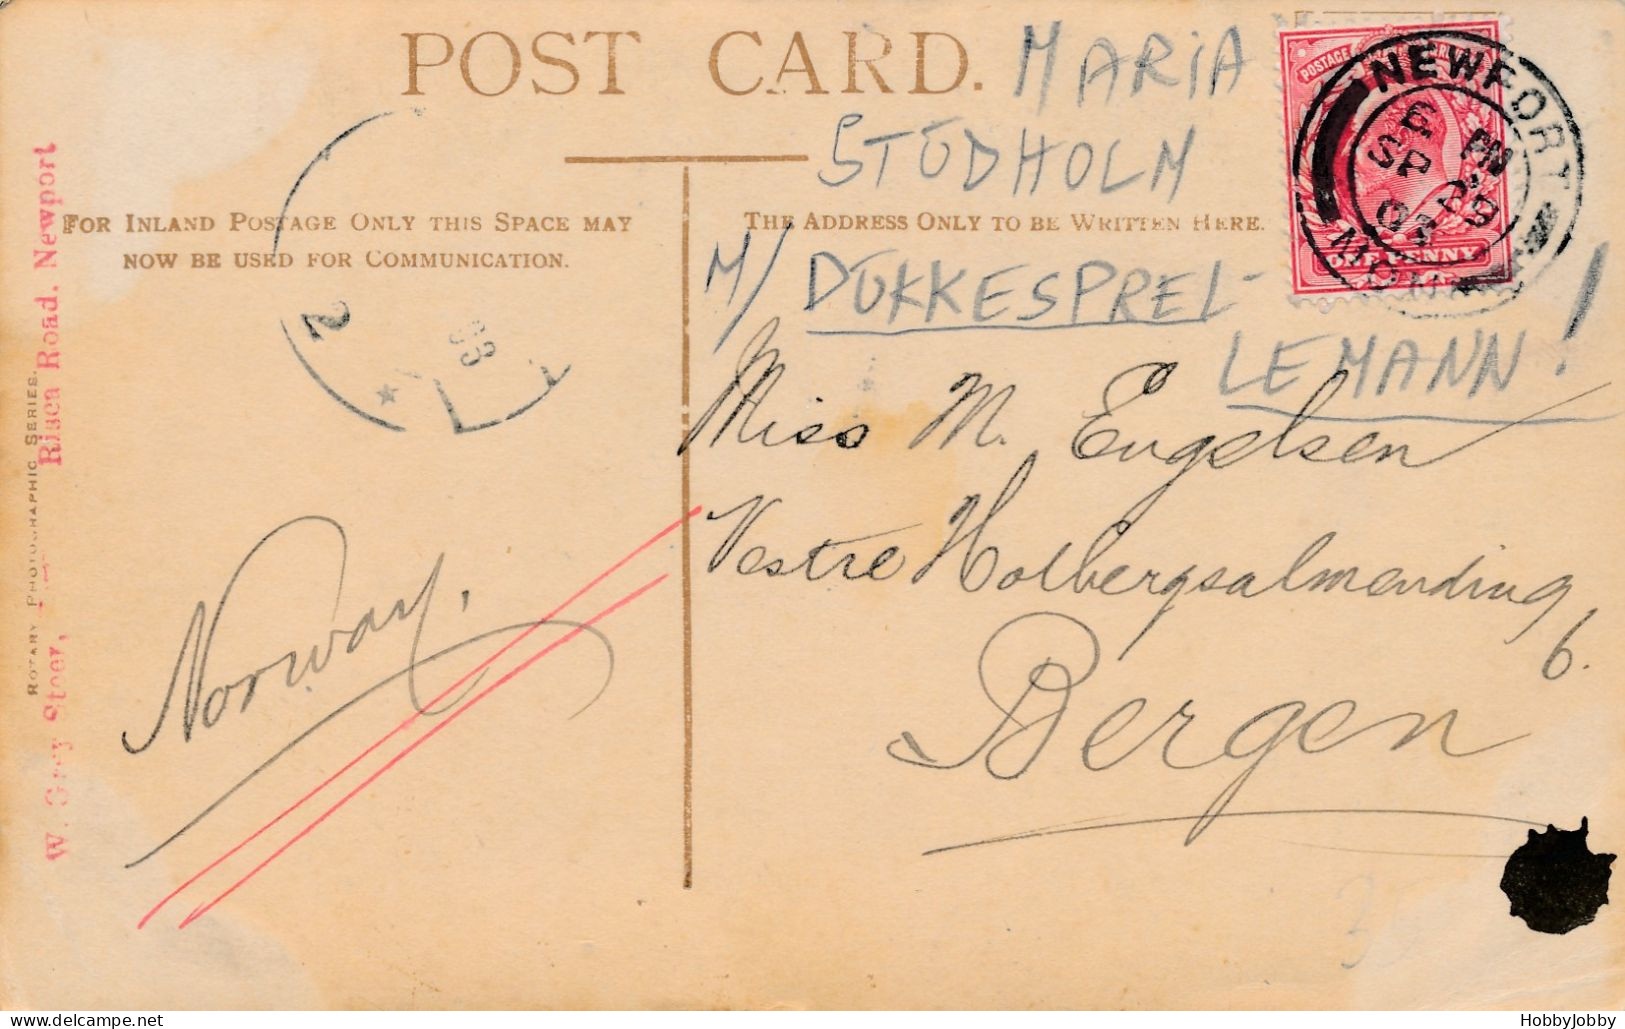 POST CARD.
MARIA
STUDHOLM
FOR INLAND POSTAGE ONLY THIS SPACE MAY
NOW BE USED FOR COMMUNICATION.
THE ADDRESS ONLY TO BE WRITTEN HERE.
M/ DUKKESPREL-
LEMANN!
POSTAGE
ONE PENNY
NEWPORT
MON
PM
SP
2
Miss M. Engelsen
Vestre Holbergsalmending
6.
Bergen
Norway.
ROTARY PHOTOGRAPHIC SERIES.
W. Grey Steer,
Risca Road. Newport
HobbyJobby